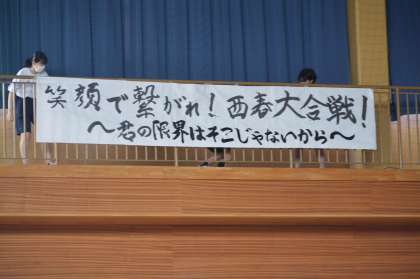 笑顔で繋がれ!西春大合戦!
〜君の限界はそこじゃないから〜